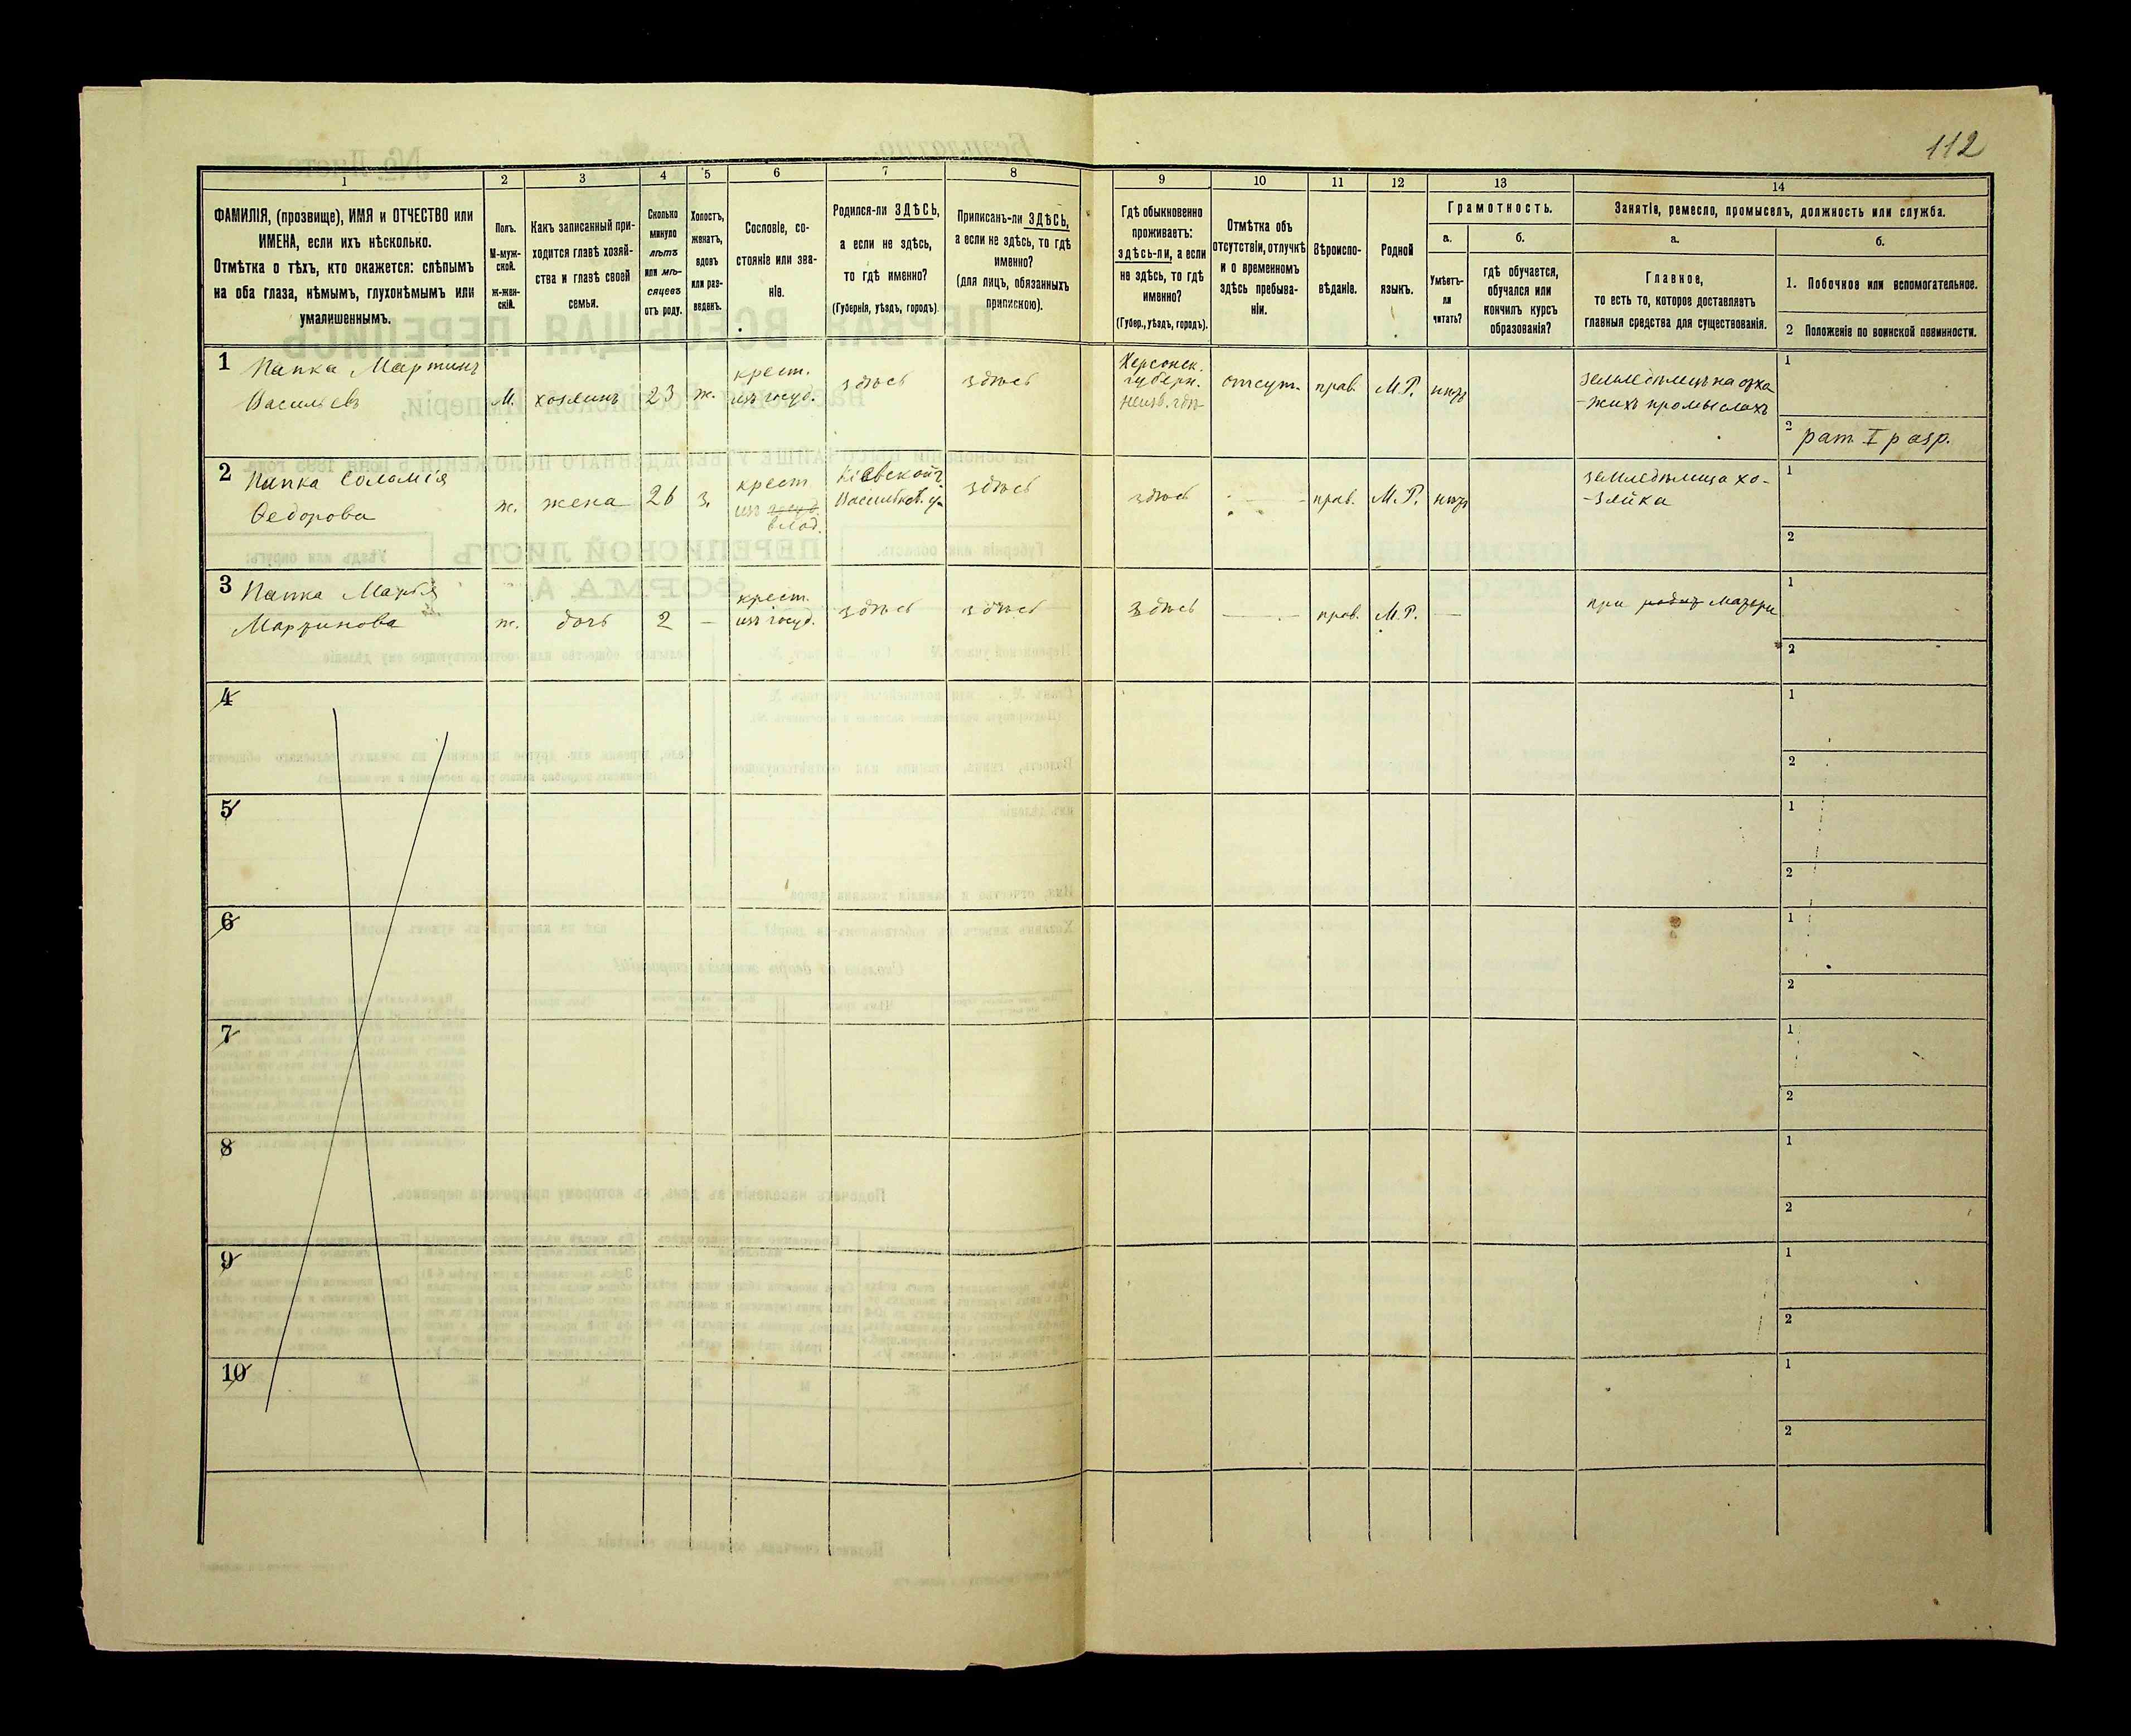 112
1
2
3
4
5
6
7
8
9
10
11
12
13
14
ФАМИЛІЯ, (прозвище), ИМЯ и ОТЧЕСТВО или
ИМЕНА, если ихъ нѣсколько.
Отмѣтка о тѣхъ, кто окажется: слѣпымъ
на оба глаза, нѣмымъ, глухонѣмымъ или
умалишеннымъ.
Полъ.
М-муж-
ской.
ж-жен-
скій.
Какъ записанный при-
ходится главѣ хозяй-
ства и главѣ своей
семьи.
Сколько
минуло
лѣтъ
или мѣ-
сяцевъ
отъ роду.
Холостъ,
женатъ,
вдовъ
или раз-
веденъ.
Сословіе, со-
стояніе или зва-
ніе.
Родился-ли ЗДѢСЬ,
а если не здѣсь,
то гдѣ именно?
(Губернія, уѣздъ, городъ).
Приписанъ-ли ЗДѢСЬ,
а если не здѣсь, то гдѣ
именно?
(для лицъ, обязанныхъ
припискою).
Гдѣ обыкновенно
проживаетъ:
здѣсь-ли, а если
не здѣсь, то гдѣ
именно?
(Губер., уѣздъ, городъ).
Отмѣтка объ
отсутствіи, отлучкѣ
и о временномъ
здѣсь пребыва-
ніи.
Вѣроиспо-
вѣданіе.
Родной
языкъ.
Грамотность.
а.
Умѣетъ-
ли
читать?
б.
гдѣ обучается,
обучался или
кончилъ курсъ
образованія?
Занятіе, ремесло, промыселъ, должность или служба.
а.
Главное,
то есть то, которое доставляетъ
главныя средства для существованія.
б.
1. Побочное или вспомогательное.
2 Положеніе по воинской повинности.
1 Папка Мартинъ
Васильевъ
М.
хозяинъ
23
ж.
крест.
изъ госуд.
здѣсь
здѣсь
Херсонск.
губерн.
неизв. гдѣ
отсут.
прав.
М.Р.
нѣтъ
земледѣлецъ на отхо
-жихъ промыслахъ
1
2 рат. I разр.
2 Папка Соломія
Федорова
ж.
жена
26
з.
крест
изъ госуд.
влад.
Кіевской г.
Васильков. у.
здѣсь
здѣсь
—
прав.
М.Р.
нѣтъ
земледѣлица хо-
-зяйка
1
2
3 Папка Марія
Мартинова
ж.
дочь
2
—
крест.
изъ госуд.
здѣсь
здѣсь
здѣсь
—
прав.
М.Р.
—
при матери
1
2
4
1
2
5
1
2
6
1
2
7
1
2
8
1
2
9
1
2
10
1
2